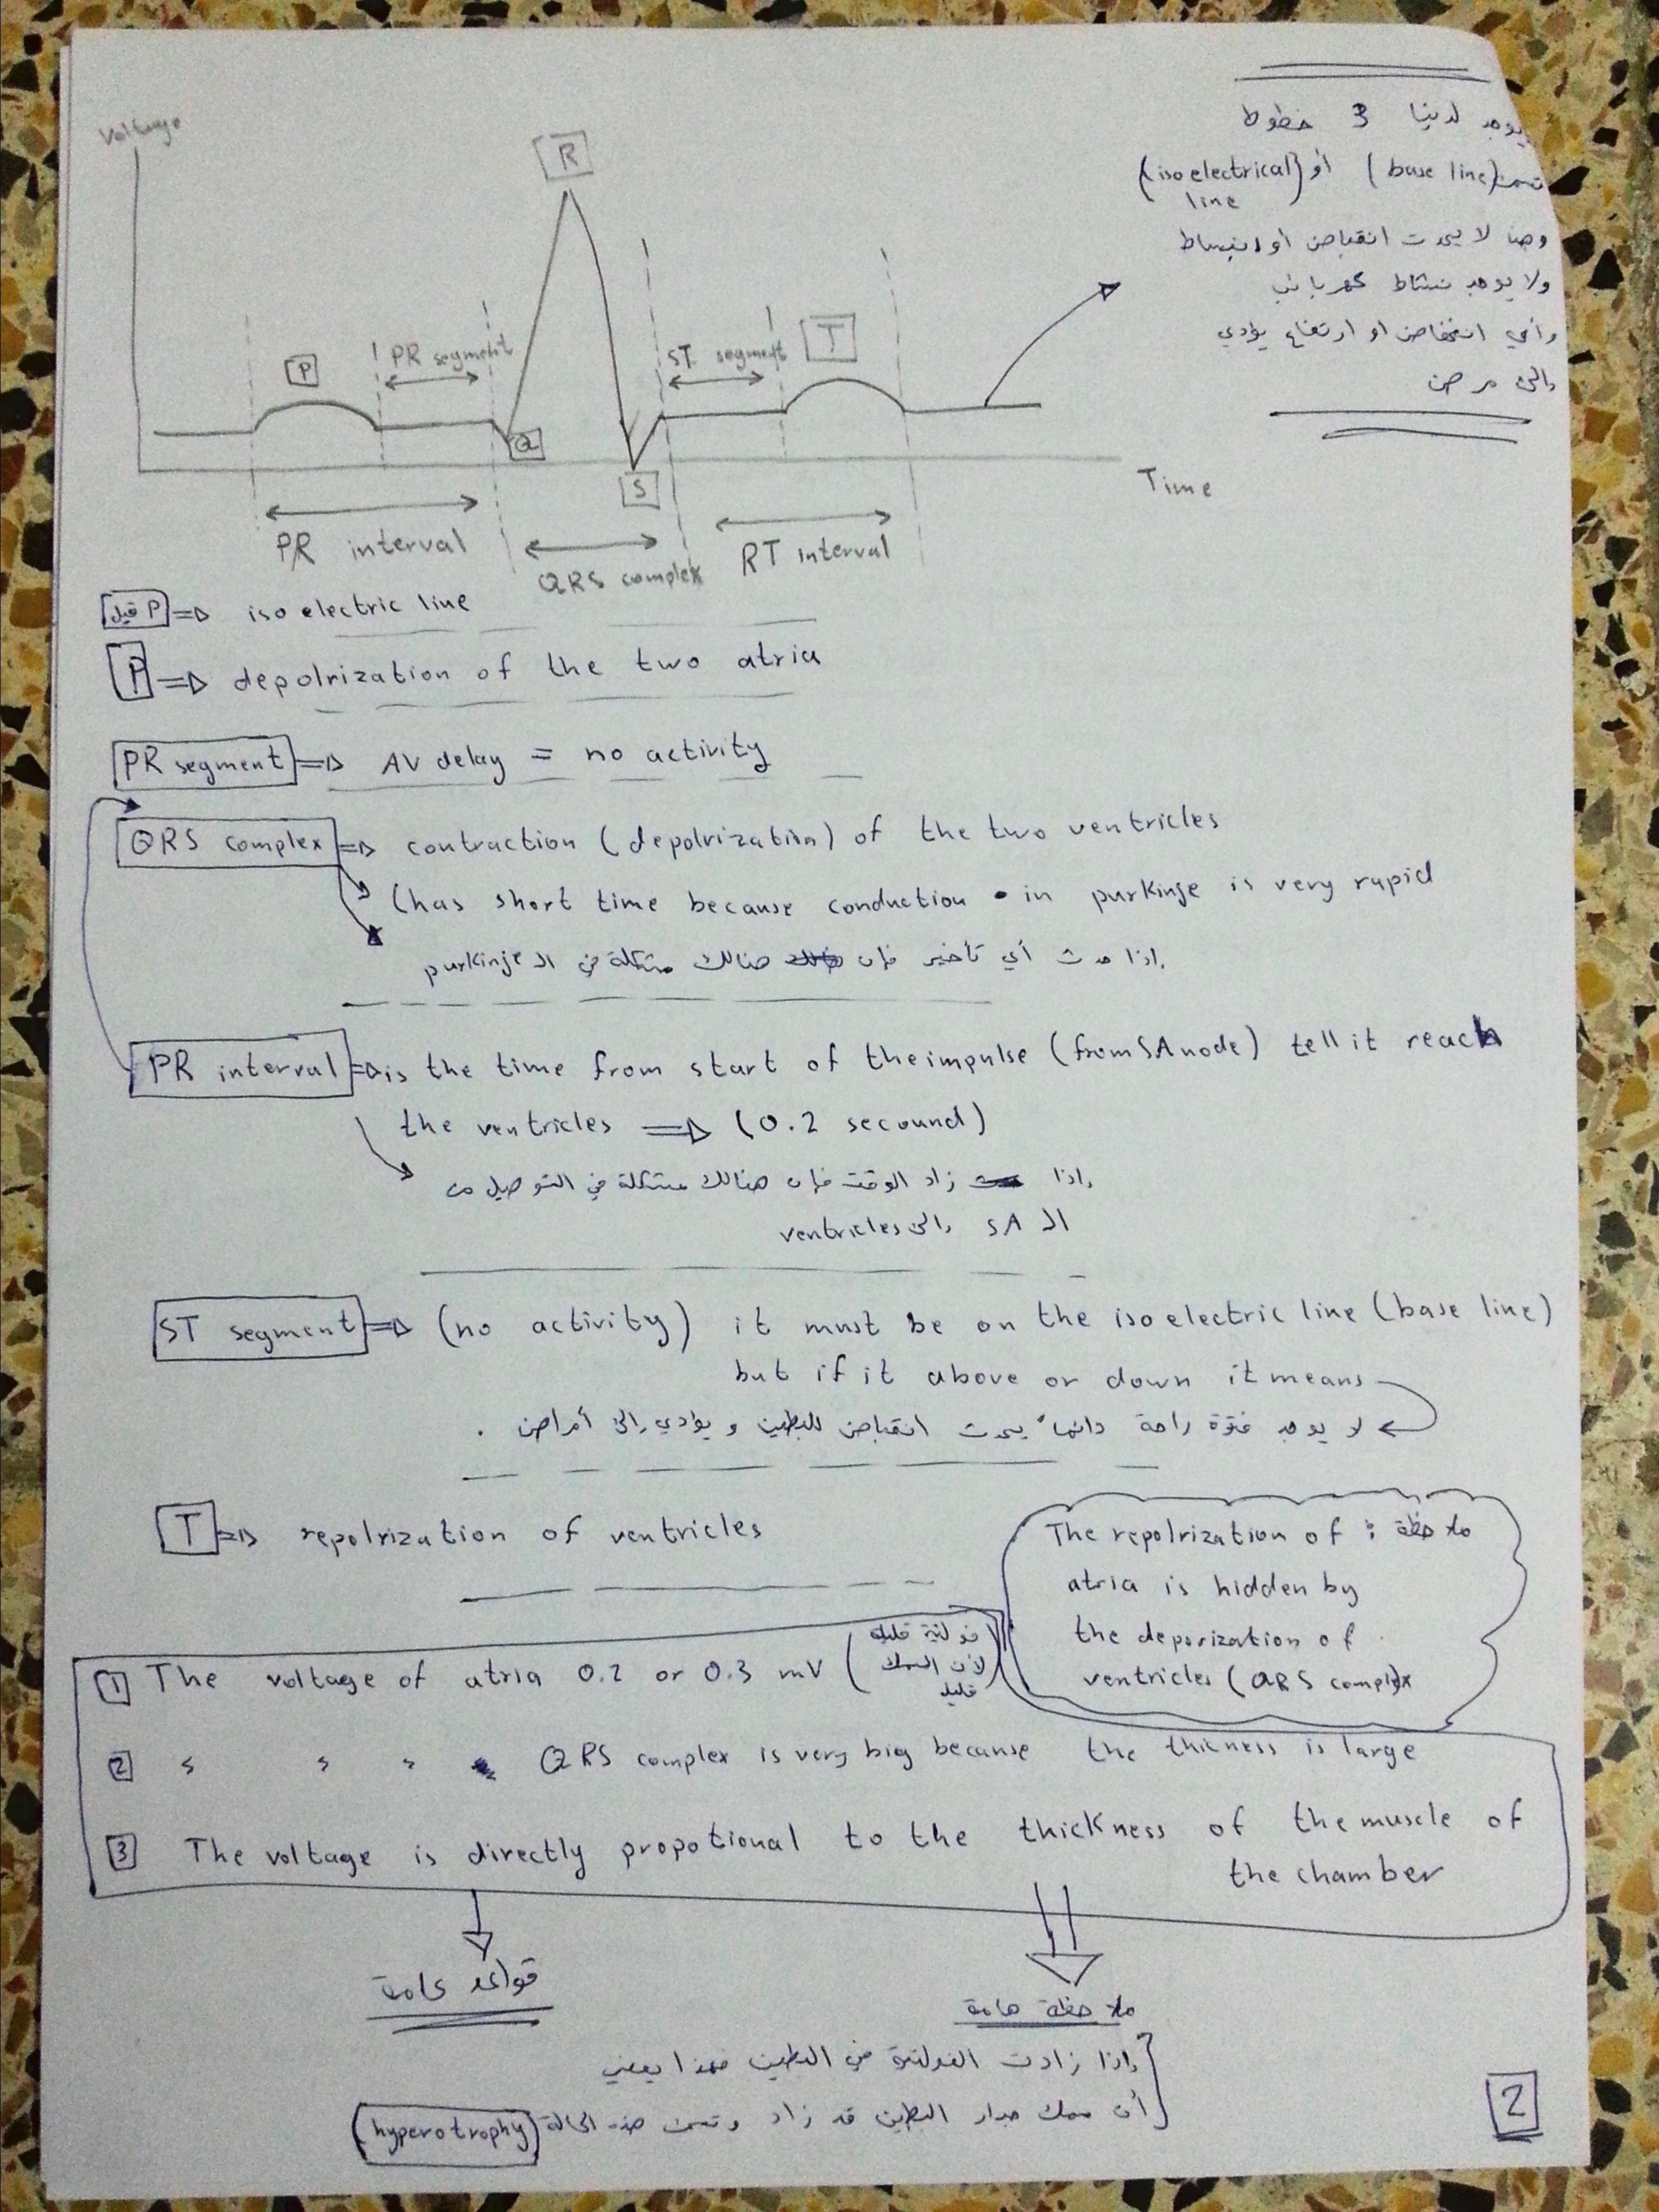 Voltage
R
P
PR segment
Q
S
ST segment
T
Time
PR interval
QRS complex
RT interval
يوجد لدينا 3 خطوط
تسمى (base line) أو (isoelectrical line)
وهنا لا يحدث انقباض او انبساط
ولا يوجد نشاط كهربائي
وأي انخفاض او ارتفاع يؤدي
إلى مرض
قبل P => isoelectric line
P => depolrization of the two atria
PR segment => AV delay = no activity
QRS complex => contraction (depolrization) of the two ventricles
(has short time because conduction in purkinje is very rapid
إذا حدث أي تأخير فإن هنالك مشكلة في الـ purkinje
PR interval => is the time from start of the impulse (from SA node) tell it reach
the ventricles => (0.2 secound)
إذا زاد الوقت فإن هنالك مشكلة في التوصيل من
الـ SA إلى ventricles
ST segment => (no activity) it must be on the isoelectric line (base line)
but if it above or down it means
لا يوجد فترة راحة دائما يحدث انقباض للبطين و يؤدي إلى أمراض .
T => repolrization of ventricles
ملاحظة : The repolrization of
atria is hidden by
the deporization of
ventricles (QRS complex
1 The voltage of atria 0.2 or 0.3 mV (فولتية قليلة
لأن السمك
قليل)
2 " " " QRS complex is very big because the thickness is large
3 The voltage is directly propotional to the thickness of the muscle of
the chamber
قواعد عامة
ملاحظة هامة
إذا زادت الفولتية في البطين فهذا يعني
أن سمك جدار البطين قد زاد وتسمى هذه الحالة (hyperotrophy)
2